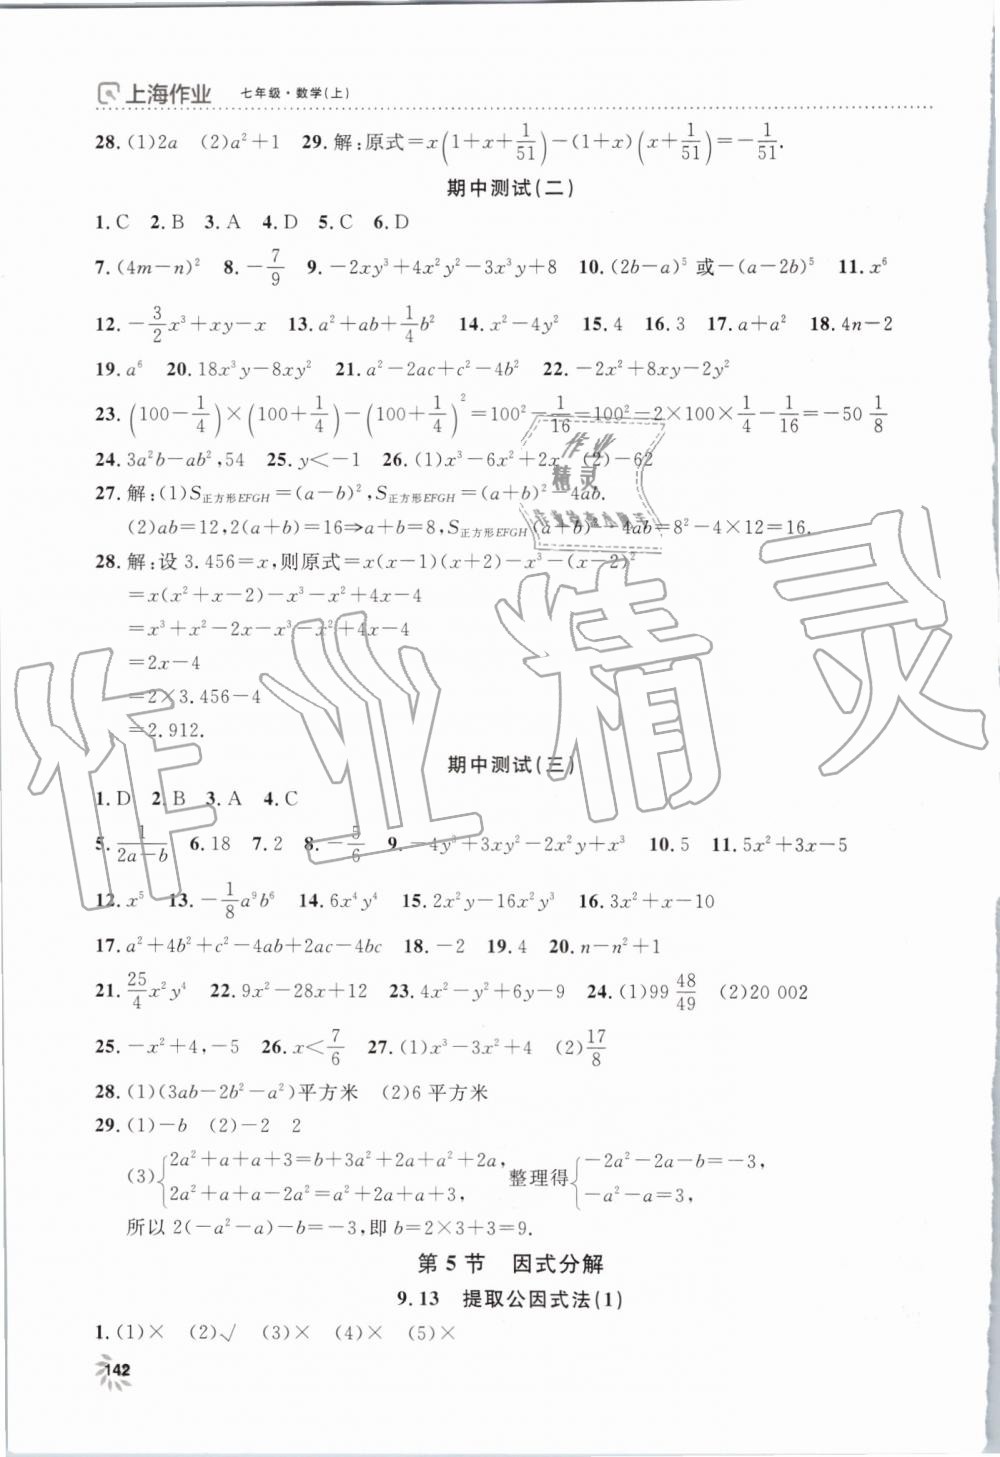 上海作业 七年级·数学(上)
28. (1)2a (2)a²+1 29. 解:原式=x(1+x+1/51)-(1+x)(x+1/51)=-1/51.
期中测试(二)
1. C 2. B 3. A 4. D 5. C 6. D
7. (4m-n)² 8. -7/9 9. -2xy³+4x²y²-3x³y+8 10. (2b-a)⁵或-(a-2b)⁵ 11. x⁶
12. -3/2x³+xy-x 13. a²+ab+1/4b² 14. x²-4y² 15. 4 16. 3 17. a+a² 18. 4n-2
19. a⁶ 20. 18x³y-8xy² 21. a²-2ac+c²-4b² 22. -2x²+8xy-2y²
23. (100-1/4)×(100+1/4)-(100+1/4)²=100²-1/16-100²-2×100×1/4-1/16=-50 1/8
24. 3a²b-ab²,54 25. y<-1 26. (1)x³-6x²+2x (2)-62
27. 解:(1)S正方形EFGH=(a-b)²,S正方形EFGH=(a+b)²-4ab.
(2)ab=12,2(a+b)=16⇒a+b=8,S正方形EFGH(a+b)²-4ab=8²-4×12=16.
28. 解:设 3.456=x,则原式=x(x-1)(x+2)-x³-(x-2)²
=x(x²+x-2)-x³-x²+4x-4
=x³+x²-2x-x³-x²+4x-4
=2x-4
=2×3.456-4
=2.912.
期中测试(三)
1. D 2. B 3. A 4. C
5. 1/(2a-b) 6. 18 7. 2 8. -5/6 9. -4y³+3xy²-2x²y+x³ 10. 5 11. 5x²+3x-5
12. x⁵ 13. -1/8a⁹b⁶ 14. 6x⁴y⁴ 15. 2x²y-16x²y³ 16. 3x²+x-10
17. a²+4b²+c²-4ab+2ac-4bc 18. -2 19. 4 20. n-n²+1
21. 25/4x²y⁴ 22. 9x²-28x+12 23. 4x²-y²+6y-9 24. (1)99 48/49 (2)20 002
25. -x²+4,-5 26. x<7/6 27. (1)x³-3x²+4 (2)17/8
28. (1)(3ab-2b²-a²)平方米 (2)6 平方米
29. (1)-b (2)-2 2
(3){2a²+a+a+3=b+3a²+2a+a²+2a, 2a²+a+a-2a²=a²+2a+a+3, 整理得{-2a²-2a-b=-3, -a²-a=3,
所以 2(-a²-a)-b=-3,即 b=2×3+3=9.
第 5 节 因式分解
9.13 提取公因式法(1)
1. (1)× (2)√ (3)× (4)× (5)×
142
作业精灵
作业
精灵